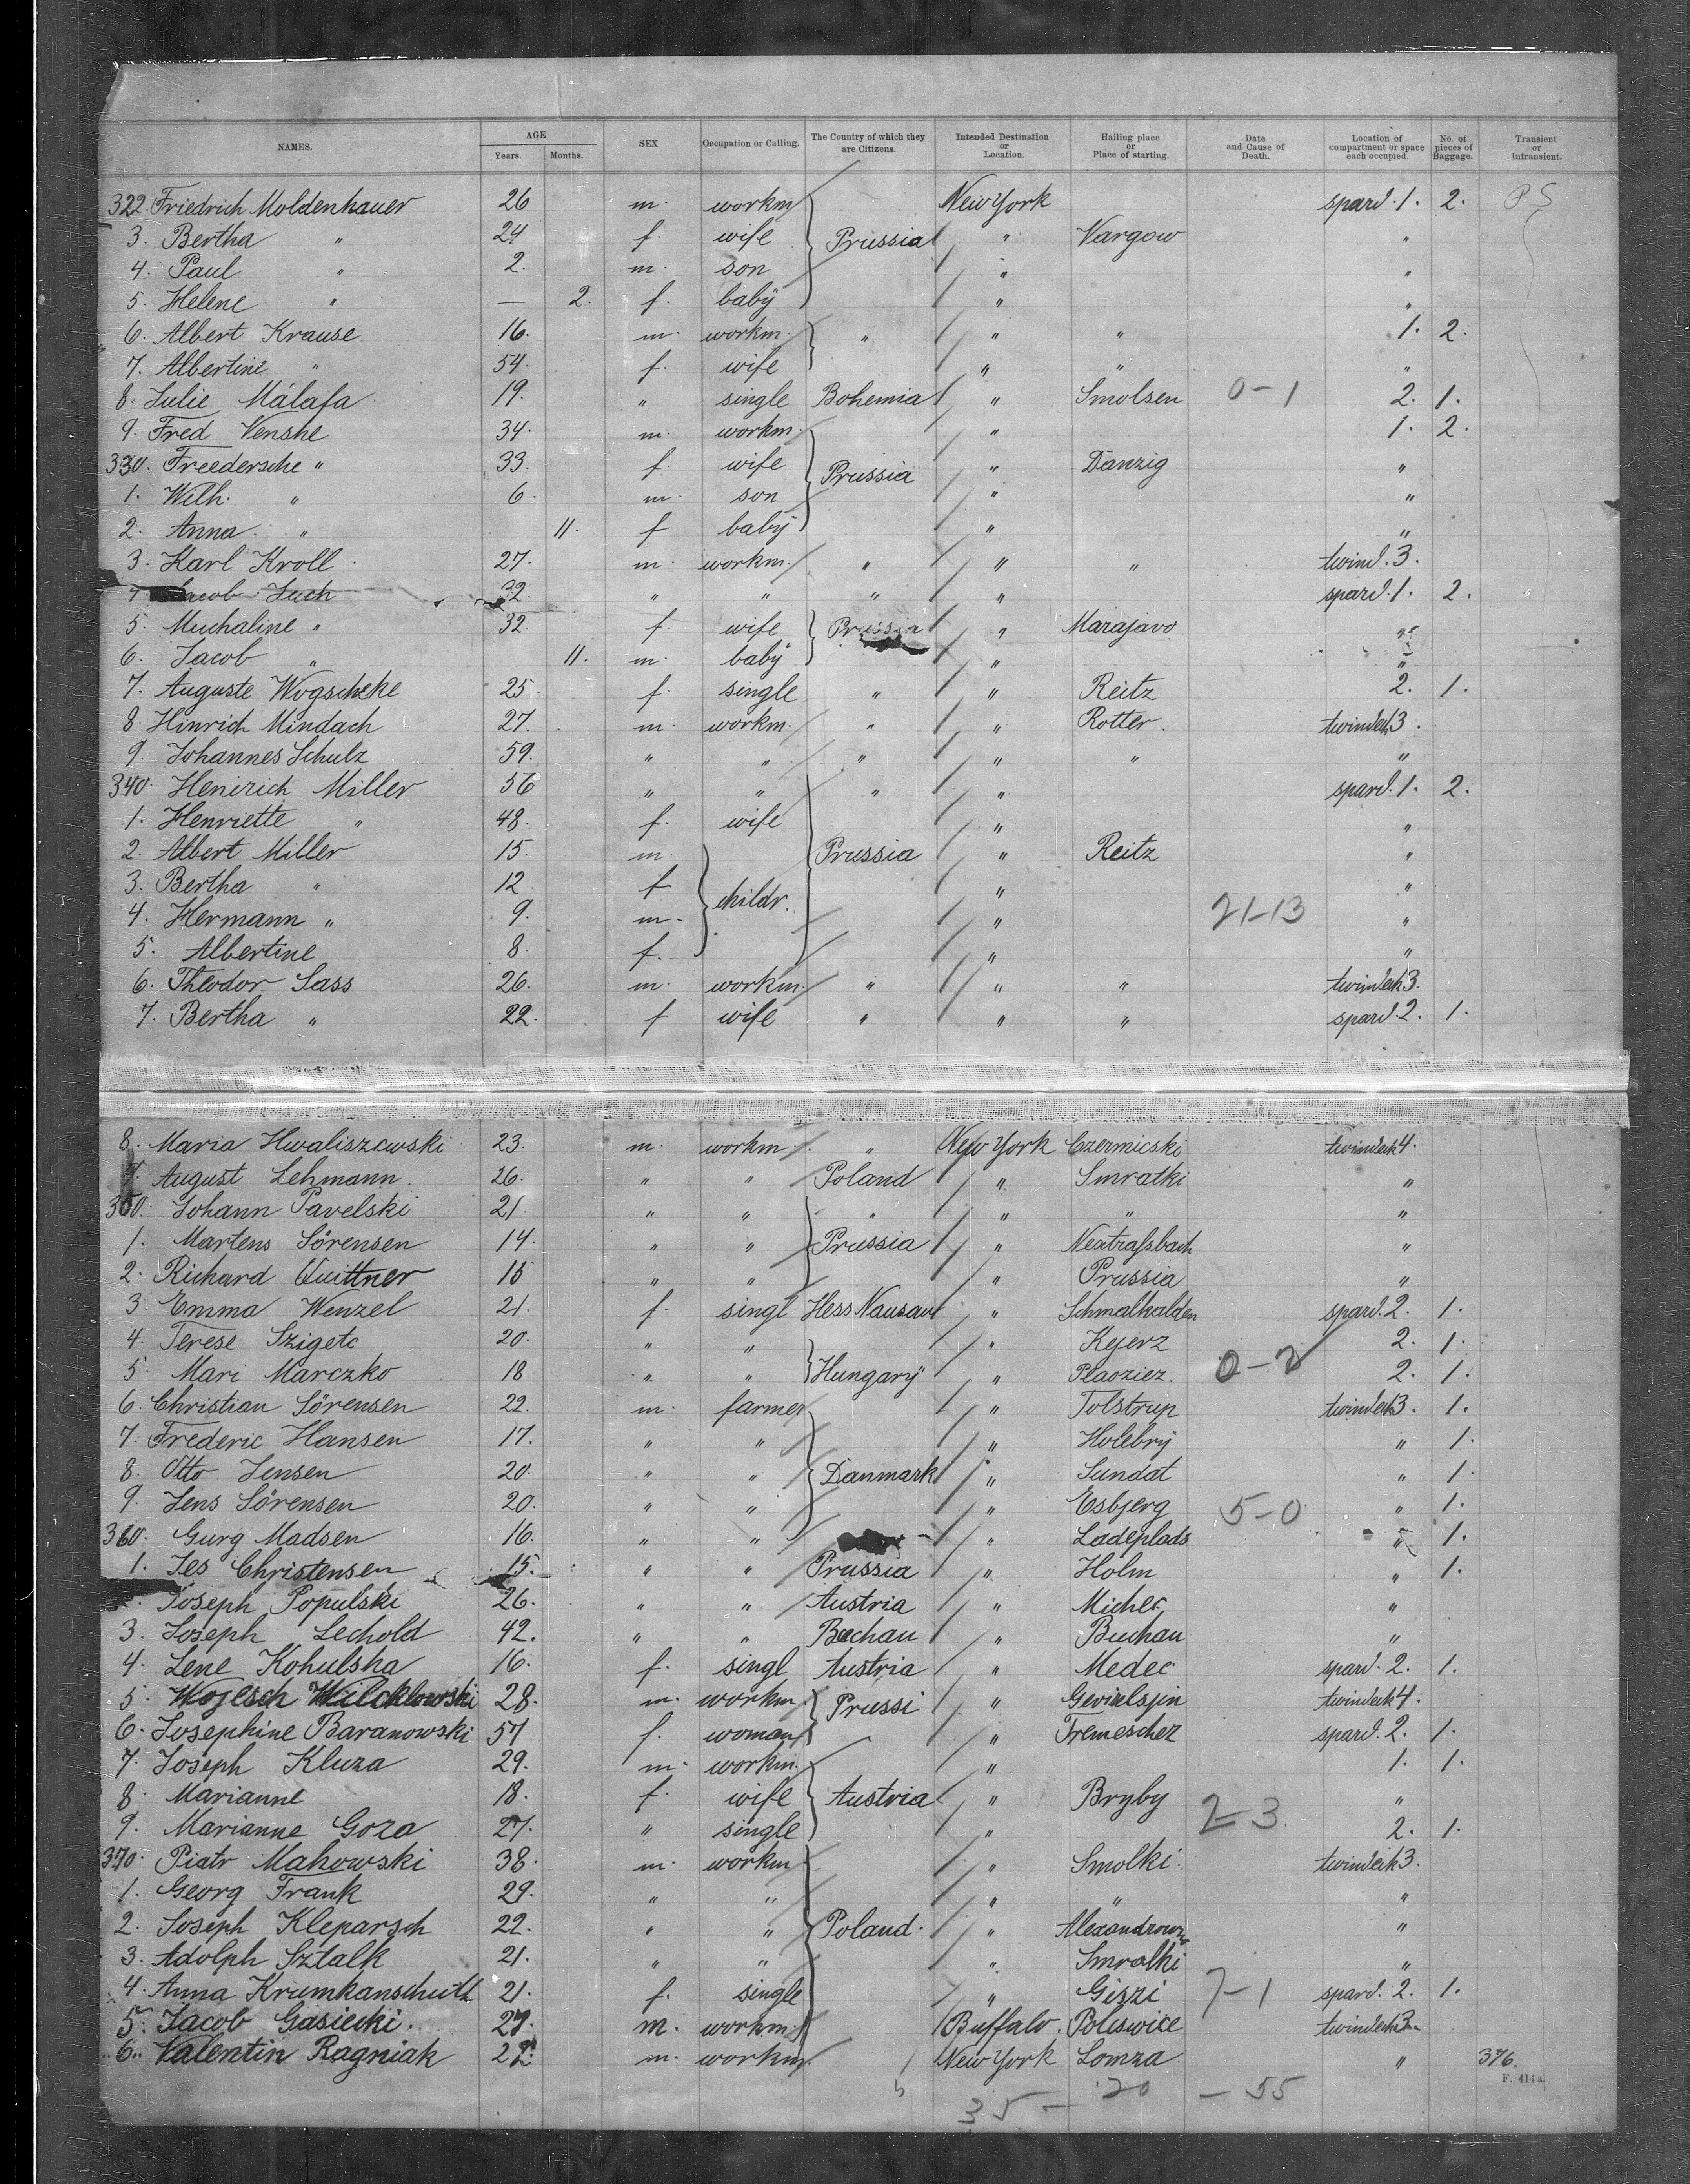 NAMES. AGE Years. Months. SEX Occupation or Calling. The Country of which they are Citizens. Intended Destination or Location. Hailing place or Place of starting. Date and Cause of Death. Location of compartment or space each occupied. No. of pieces of Baggage. Transient or Intransient.
322. Friedrich Moldenhauer 26 m. workm New York spard. 1. 2. P S
3. Bertha " 24 f. wife Prussia " Vargow "
4. Paul " 2. m. son " "
5. Helene " — 2. f. baby " "
6. Albert Krause 16. m. workm. " " " 1. 2.
7. Albertine " 54. f. wife " " "
8. Julie Málafa 19. " single Bohemia " Smolsen 0-1 2. 1.
9. Fred Venshe 34. m. workm. " 1. 2.
330. Freedersche " 33. f. wife Prussia " Danzig "
1. Wilh. " 6. m. son " "
2. Anna " 11. f baby " "
3. Karl Kroll 27. m. workm. " " " twind. 3.
Jacob Juch 32. " " " " spard. 1. 2.
5. Muchaline " 32 f. wife Prussia " Marajavo "
6. Jacob " 11. m. baby " "
7. Auguste Wogscheke 25 f. single " " Reitz 2. 1.
8. Hinrich Mindach 27. m workm. " " Rotter. twindeck 3.
9. Johannes Schulz 59. " " " " " "
340. Heinrich Miller 56 " " " " spard. 1. 2.
1. Henriette " 48. f. wife " "
2. Albert Miller 15. m. Prussia " Reitz "
3. Bertha " 12. f childr. " "
4. Hermann " 9. m. " 21-13 "
5. Albertine 8. f. " "
6. Theodor Sass 26. m. workm. " " " twindeck 3.
7. Bertha " 22. f wife " " " spard. 2. 1.
8. Maria Hwaliszewski 23. m. workm. " New York Czermicski twindeck 4.
9. August Lehmann. 26. " " Poland " Smratki "
350. Johann Pavelski 21. " " " " " "
1. Martens Sörensen 14. " " Prussia " "
2. Richard Quittner 15 " " " Prussia "
3. Emma Wenzel 21. f. singl. Hess Nausau " Schmalkalden spard. 2. 1.
4. Terese Szigetc 20. " " " Kejerz 2. 1.
5. Mari Marczko 18 " " Hungary " Plaoziez. 0-2 2. 1.
6. Christian Sörensen 22. m. farmer " Tolstrup twindeck 3. 1.
7. Frederic Hansen 17. " " " Holebry " 1.
8. Otto Jensen 20. " " Danmark " Sundat " 1.
9. Jens Sörensen 20. " " " Esbjerg 5-0 " 1.
360. Gurg Madsen 16. " " " Ladeplads " 1.
1. Jes Christensen 15. " " Prussia " Holm " 1.
Joseph Popubski 26. " " Austria " "
3. Joseph Lechold 42. " " Buchau " Buchau "
4. Lene Kohulska 16. f. singl Austria " Medec spard. 2. 1.
5. Wojesch Wilcklowski 28. m. workm. Prussi " twindeck 4.
6. Josephine Baranowski 57 f. woman " Tremeschez spard. 2. 1.
7. Joseph Kluza 29. m. workm. " 1. 1.
8. Marianne 18. f. wife Austria " Bryby "
9. Marianne Goza 27. " single " 2-3 2. 1.
370. Piatr Mahowski 38. m. workm " Smolki. twindeck 3.
1. Georg Frank 29. " " " " "
2. Joseph Kleparsch 22. " " Poland. " "
3. Adolph Sztalk 21. " " " Smralki "
4. Anna Krumkanschutt 21. f. single " Giszi 7-1 spard. 2. 1.
5. Jacob Gasiecki. 27. m. workm. Buffalo. Poliswice twindeck 3.
6. Valentin Ragniak 22. m. workm. New York Lomza "
376.
F. 414a.
35 - 20 - 55